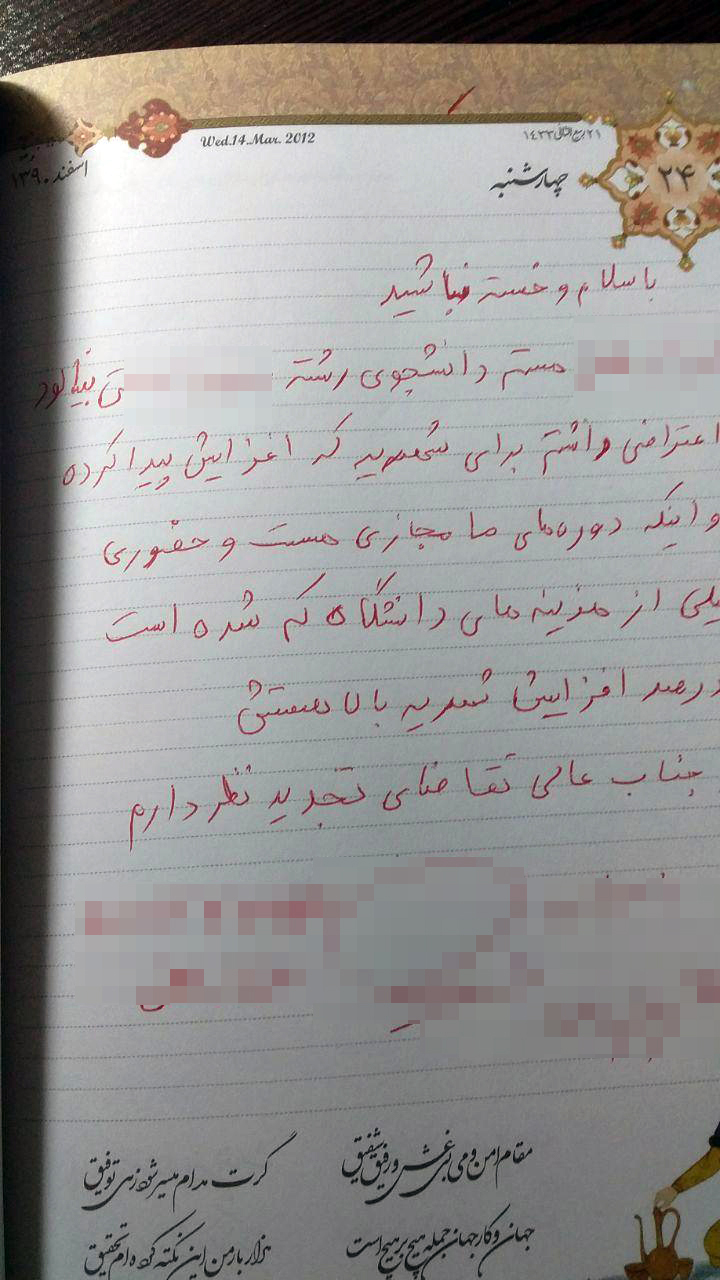 Wed.14.Mar. 2012
۲۱ ربیع‌الثانی ۱۴۳۳
اسفند ۱۳۹۰
چهارشنبه
۲۴
با سلام و خسته نباشید
هستم دانشجوی رشته
اعتراضی داشتم برای شهریه که افزایش پیدا کرده
و اینکه دوره‌های ما مجازی هست و حضوری
یلی از هزینه های دانشگاه کم شده است
درصد افزایش شهریه بالا هستش
جناب عالی تقاضای تجدید نظر دارم
مقام امن و می بی‌غش و رفیق شفیق
گرت مدام میسر شود زهی توفیق
جهان و کار جهان جمله هیچ بر هیچ است
هزار بار من این نکته کرده‌ام تحقیق